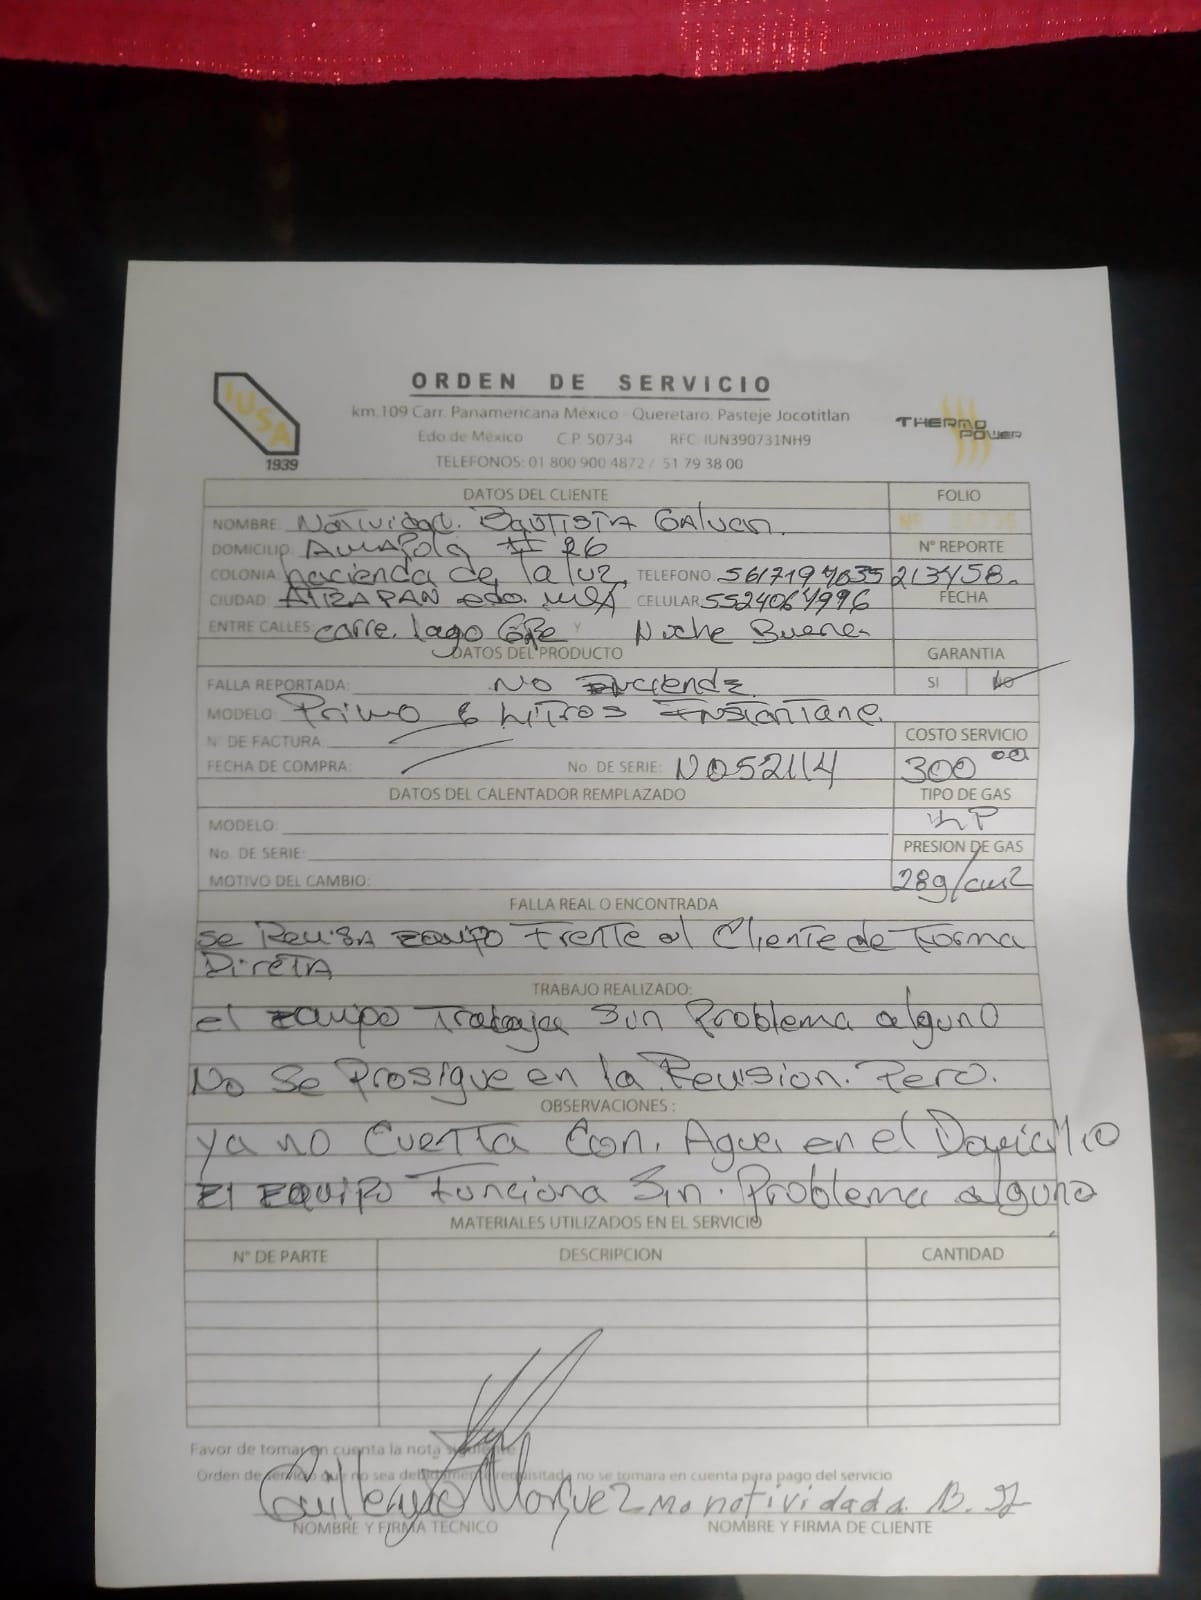 IUSA
1939
ORDEN DE SERVICIO
km.109 Carr. Panamericana México - Queretaro. Pasteje Jocotitlan
Edo de México C.P. 50734 RFC IUN390731NH9
TELEFONOS: 01 800 900 4872 / 51 79 38 00
THERMO POWER
DATOS DEL CLIENTE FOLIO
NOMBRE: Natividad. BAUTISTA GAlvan.
DOMICILIO: AMAPola # 26 N° REPORTE
COLONIA: hacienda de la luz, TELEFONO: 5617197635 213458.
CIUDAD: ATIZAPAN edo. MEX CELULAR: 5524064996 FECHA
ENTRE CALLES: carre. lago GPE Y Noche Buena
DATOS DEL PRODUCTO GARANTIA
FALLA REPORTADA: NO Enciende SI NO
MODELO: Primo 6 LiTROS INSTANTANE.
N° DE FACTURA: COSTO SERVICIO
FECHA DE COMPRA: No. DE SERIE: N052114 300 00
DATOS DEL CALENTADOR REMPLAZADO TIPO DE GAS
MODELO: LP
No. DE SERIE: PRESION DE GAS
MOTIVO DEL CAMBIO: 28g/cm2
FALLA REAL O ENCONTRADA
Se ReviSA EQUIPO Frente al Cliente de Forma
DiretA
TRABAJO REALIZADO:
el Equipo Trabaja Sin Problema alguno
No Se Prosigue en la Revision. Pero.
OBSERVACIONES:
ya no Cuenta Con. Agua en el Domicilio
El EQUIPO Funciona Sin. Problema alguno
MATERIALES UTILIZADOS EN EL SERVICIO
N° DE PARTE DESCRIPCION CANTIDAD
Favor de tomar en cuenta la nota siguiente
Orden de servicio que no sea debidamente requisitada no se tomara en cuenta para pago del servicio
Guillermo Marquez
NOMBRE Y FIRMA TECNICO NOMBRE Y FIRMA DE CLIENTE